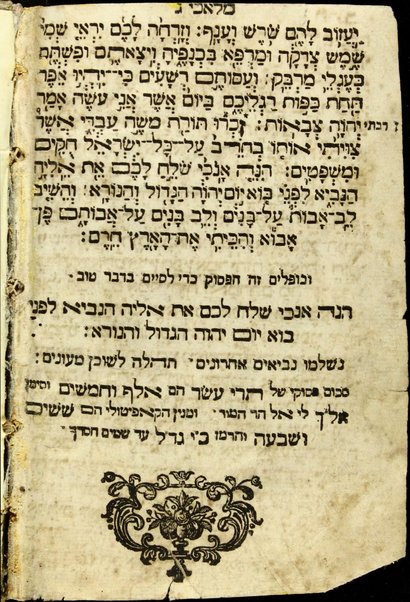 מלאכי ג
יַעֲזוֹב לָהֶם שֹׁרֶשׁ וְעָנָף: וְזָרְחָה לָכֶם יִרְאֵי שְׁמִי
שֶׁמֶשׁ צְדָקָה וּמַרְפֵּא בִּכְנָפֶיהָ וִיצָאתֶם וּפִשְׁתֶּם
כְּעֶגְלֵי מַרְבֵּק: וְעַסּוֹתֶם רְשָׁעִים כִּי־יִהְיוּ אֵפֶר
תַּחַת כַּפּוֹת רַגְלֵיכֶם בַּיּוֹם אֲשֶׁר אֲנִי עֹשֶׂה אָמַר
יְהוָה צְבָאוֹת: זִכְרוּ תּוֹרַת מֹשֶׁה עַבְדִּי אֲשֶׁר
ז רבתי
צִוִּיתִי אוֹתוֹ בְחֹרֵב עַל־כָּל־יִשְׂרָאֵל חֻקִּים
וּמִשְׁפָּטִים: הִנֵּה אָנֹכִי שֹׁלֵחַ לָכֶם אֵת אֵלִיָּה
הַנָּבִיא לִפְנֵי בּוֹא יוֹם יְהוָה הַגָּדוֹל וְהַנּוֹרָא: וְהֵשִׁיב
לֵב־אָבוֹת עַל־בָּנִים וְלֵב בָּנִים עַל־אֲבוֹתָם פֶּן־
אָבוֹא וְהִכֵּיתִי אֶת־הָאָרֶץ חֵרֶם:
וכופלים זה הפסוק כדי לסיים בדבר טוב
הנה אנכי שלח לכם את אליה הנביא לפני
בוא יום יהוה הגדול והנורא:
נשלמו נביאים אחרונים תהלה לשוכן מעונים:
סכום פסוקי של תרי עשר הם אלף וחמשים וסימן
אל״ך לי אל הר המור ומנין הקאפיטולי הם ששים
ושבעה והרמז כ״י גדל עד שמים חסדך